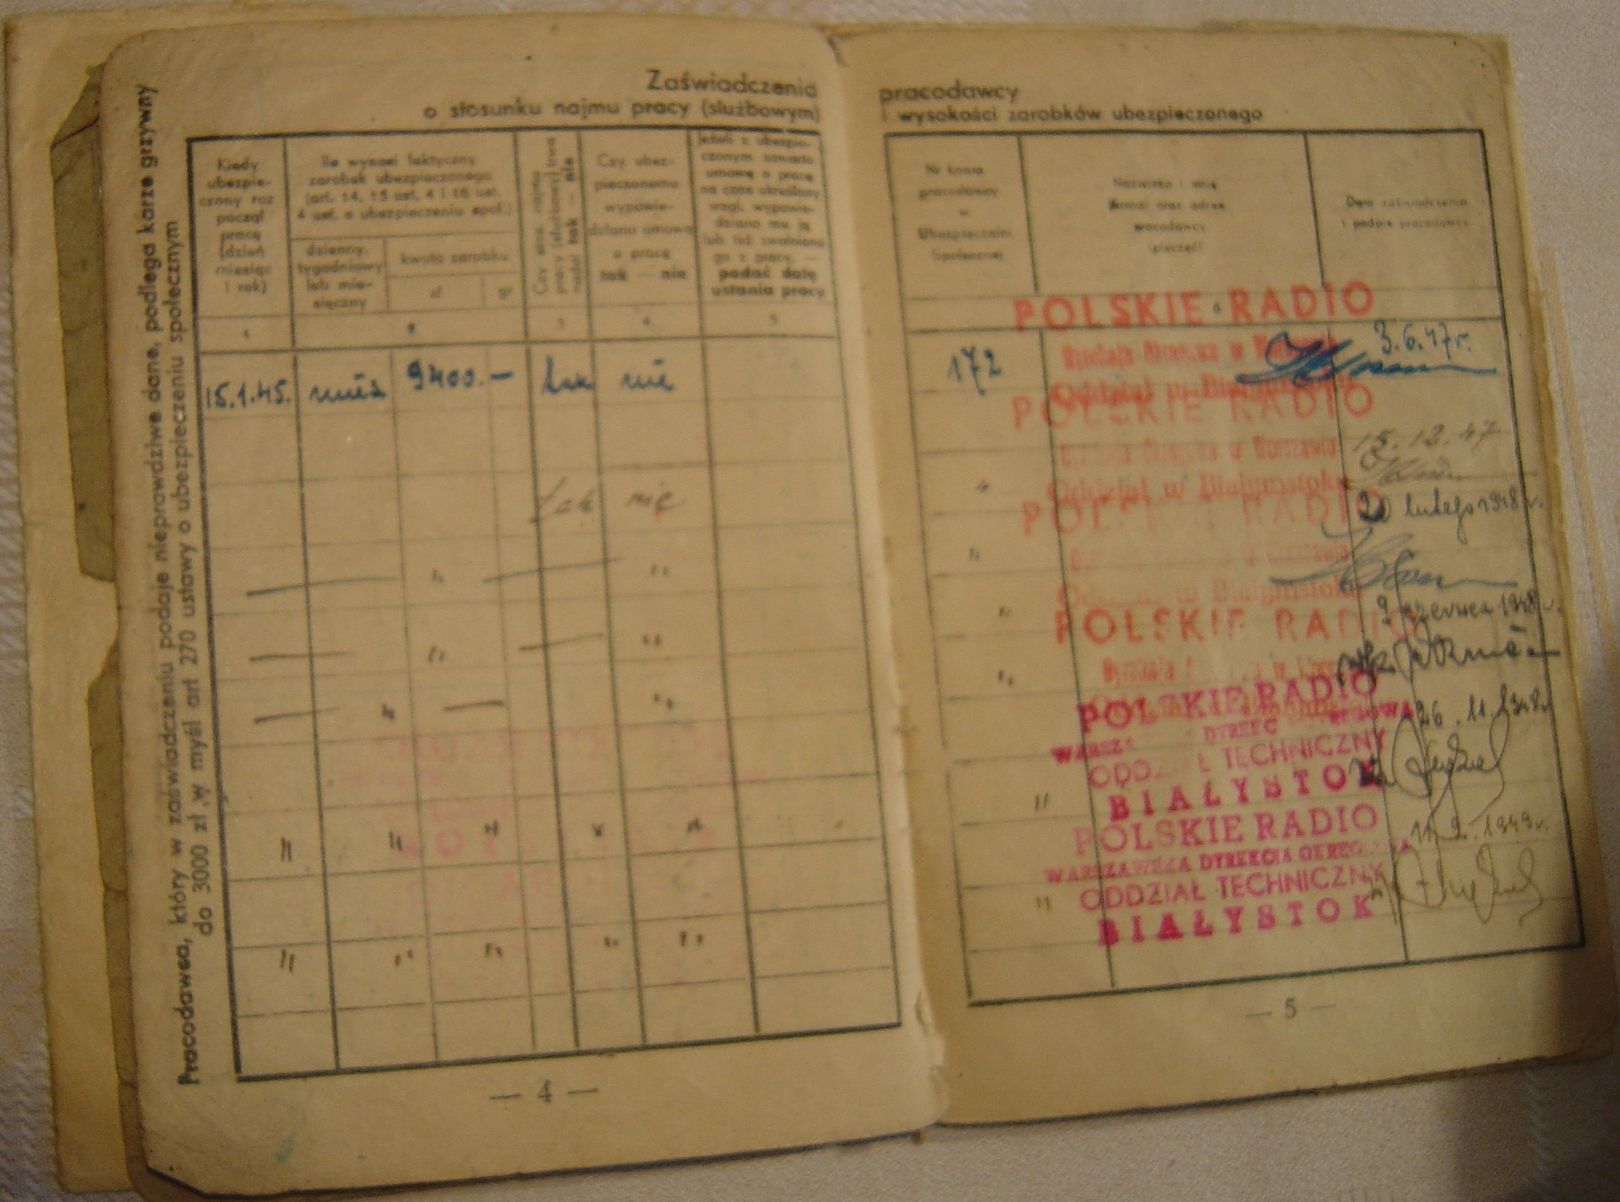 Zaświadczenia
o stosunku najmu pracy (służbowym)
Kiedy
ubezpie-
czony roz
począł
pracę
(dzień
miesiąc
i rok)
Ile wynosi faktyczny
zarobek ubezpieczonego
(art. 14, 15 ust. 4 i 16 ust.
4 ust. o ubezpieczeniu społ.)
dzienny,
tygodniowy
lub mie-
sięczny
kwota zarobku
zł gr
pracy (służbowy) trwa
nadal tak — nie
Czy ubez-
pieczonemu
wypowie-
dziano umowę
o pracę
tak — nie
Jeżeli z ubezpie-
czonym zawarto
umowę o pracę
na czas określony
wzgl. wypowie-
dziano mu ją
lub też zwolniono
go z pracy, —
podać datę
ustania pracy
1 2 3 4 5
15.1.45. mies 9400.— tak nie
tak nie
" "
" "
" "
" " " " "
" " " " "
— 4 —
Pracodawca, który w zaświadczeniu podaje nieprawdziwe dane, podlega karze grzywny
do 3000 zł w myśl art 270 ustawy o ubezpieczeniu społecznym
pracodawcy
i wysokości zarobków ubezpieczonego
Nr konta
pracodawcy
w
Ubezpieczalni
Społecznej
Nazwisko i imię
firma oraz adres
pracodawcy
(pieczęć)
Data zaświadczenia
i podpis pracodawcy
172
POLSKIE RADIO
Oddział w Białymstoku
3.6.47r.
POLSKIE RADIO
Oddział w Białymstoku
15.12.47
"
POLSKIE RADIO
Oddział w Białymstoku
20 lutego 1948 r.
"
POLSKIE RADIO
9 czerwca 1948 r.
"
POLSKIE RADIO
ODDZIAŁ TECHNICZNY
BIAŁYSTOK
26.11.1948r.
"
POLSKIE RADIO
WARSZAWSKA DYREKCJA OKRĘGOWA
ODDZIAŁ TECHNICZNY
BIAŁYSTOK
11.2.1949r.
"
— 5 —